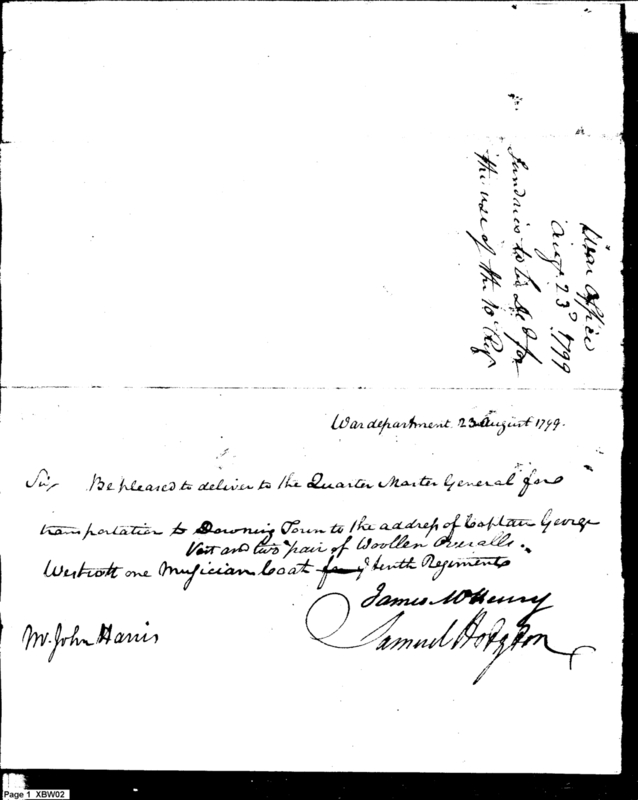 War Office
Augt. 23d. 1799
Sundries to be Dd for
the use of the 10 Regt
War department 23 August 1799.
Sir, Be pleased to deliver to the Quarter Master General for
transportation to Downing Town to the address of Captain George
Vest and two pair of Woollen Overalls.
Westcott one Musician Coat for ye tenth Regiment
James McHenry
Samuel Hodgdon
Mr. John Harris
Page 1 XBW02